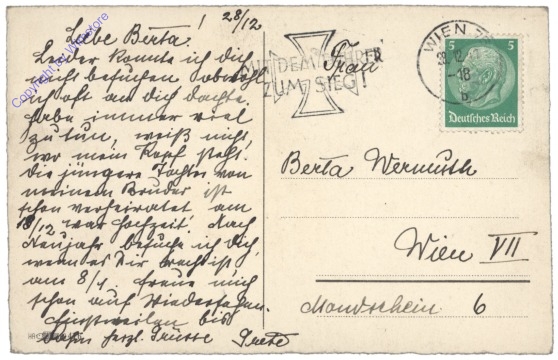 28/12
Liebe Berta!
Leider konnte ich dich
nicht besuchen obwohl
ich oft an dich dachte.
habe immer viel
zu tun, weiß nicht,
wo mein Kopf steht.
die jüngere Tochter von
meinem Bruder ist
schon verheiratet am
18/12 war Hochzeit. Nach
Neujahr besuche ich dich,
wenn es Dir recht ist
am 8/1. freue mich
schon auf Wiedersehen.
Einstweilen bis
dahin herzl. Grüsse Grete
MIT DEM FÜHRER
ZUM SIEG!
WIEN
28.12
-18
b
5 5
Deutsches Reich
Frau
Berta Wermuth
Wien VII
Mondschein 6
Copyright by